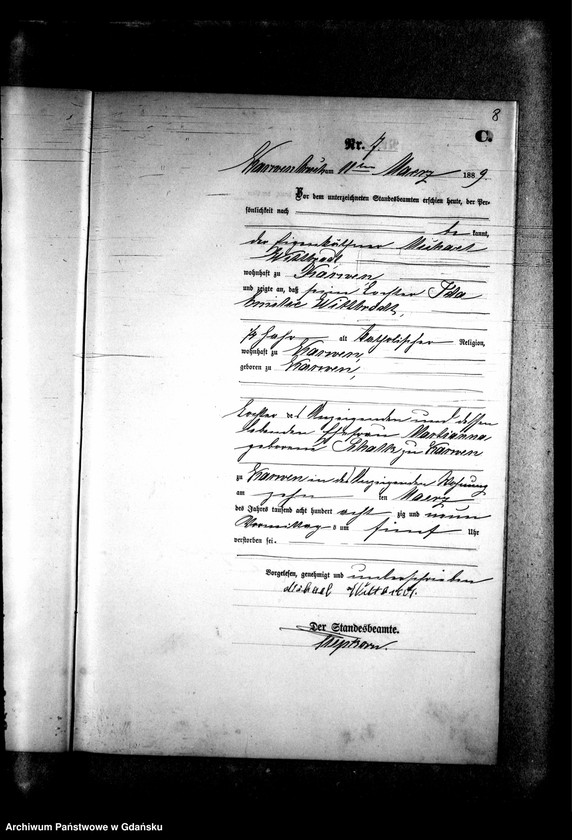 8
C.
Nr. 7.
am 11ten Maerz 1889.
Vor dem unterzeichneten Standesbeamten erschien heute, der Per-
sönlichkeit nach
be kannt,
der Michael
wohnhaft zu Karwen
und zeigte an, daß seine Tochter Ida
Wittbrodt,
Jahr alt katholischer Religion,
wohnhaft zu Karwen,
geboren zu Karwen,
Tochter des Anzeigenden und dessen
lebenden Ehefrau Marianna
geborene zu Karwen
zu Karwen in des Anzeigenden Wohnung
am zehn ten Maerz
des Jahres tausend acht hundert acht zig und neun
Vormittag s um fünf Uhr
verstorben sei.
Vorgelesen, genehmigt und unterschrieben
Der Standesbeamte.
Archiwum Państwowe w Gdańsku